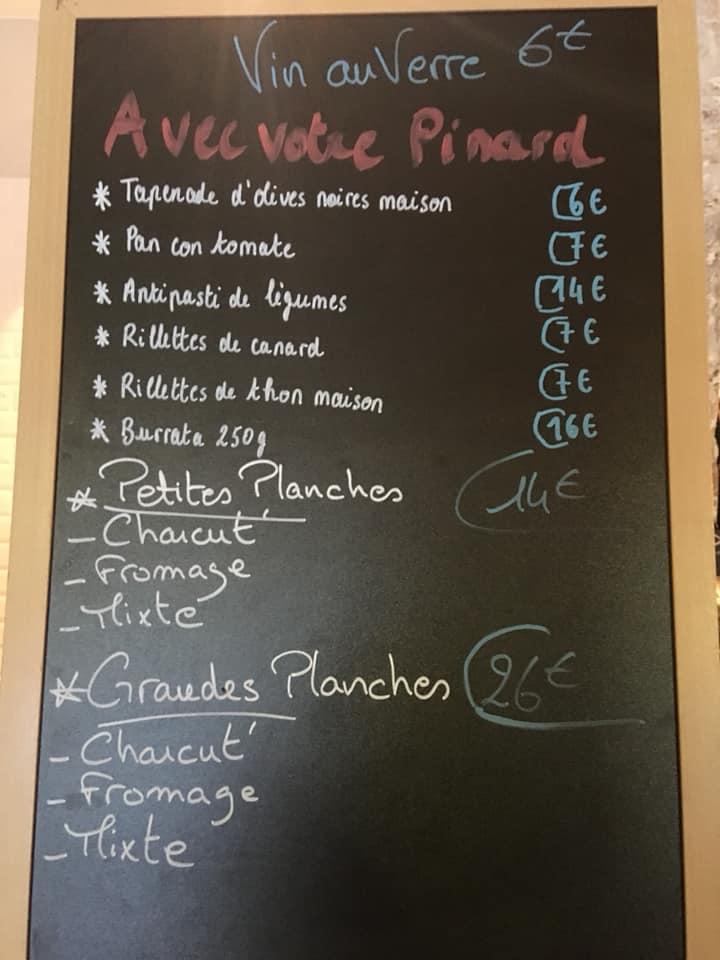 Vin au Verre 6€
Avec votre Pinard
* Tapenade d'olives noires maison 6€
* Pan con tomate 7€
* Antipasti de légumes 14€
* Rillettes de canard 7€
* Rillettes de thon maison 7€
* Burrata 250g 16€
* Petites Planches 14€
- Charcut'
- Fromage
- Mixte
* Grandes Planches 26€
- Charcut'
- Fromage
- Mixte